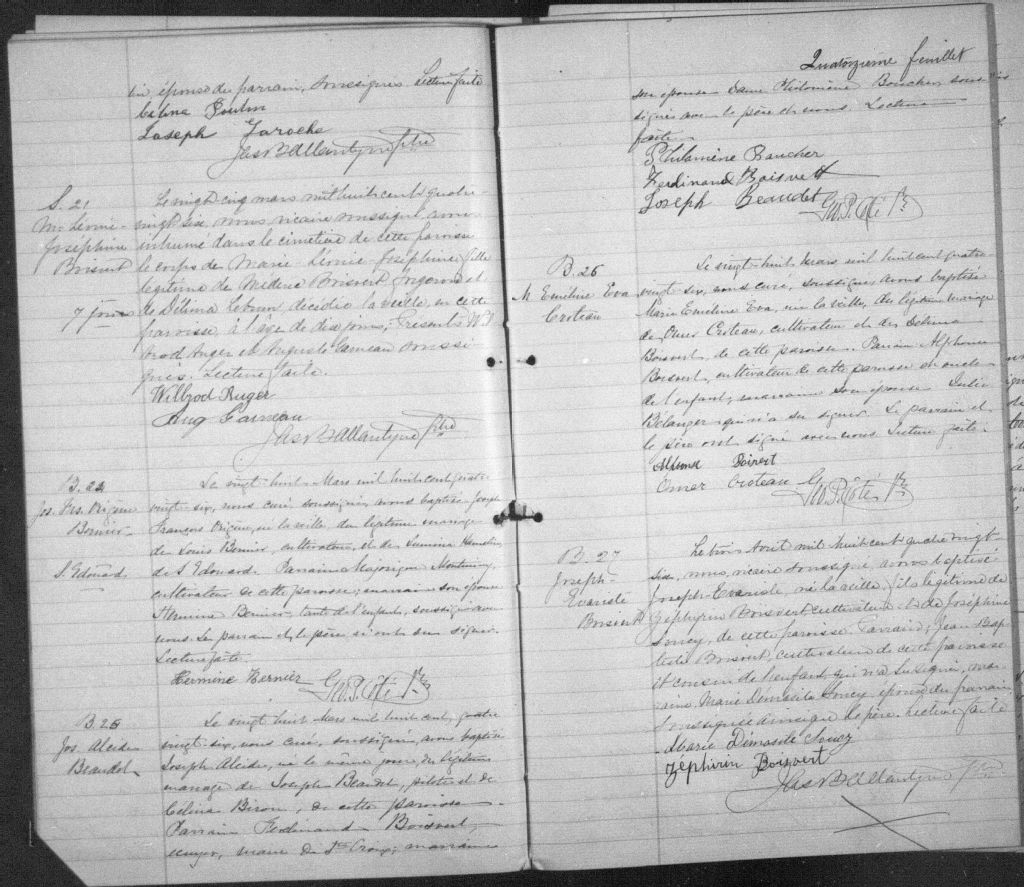 épouse du parrain, soussignés. Lecture faite
Celina Poulin
Joseph Laroche
Jas Ballantyne Ptre
S. 21
M. Léonie-
Joséphine
Boisvert
7 jours
Le vingt cinq mars mil huit cent quatre-
vingt six, nous vicaire soussigné avons
inhumé dans le cimetière de cette paroisse
le corps de Marie-Léonie-Joséphine fille
légitime de Médéric Boisvert et
de Délima Lebrun, décédée la veille, en cette
paroisse à l'âge de dix jours; Présents Wil-
brod Auger et Auguste Garneau soussi-
gnés. Lecture faite.
Wilbrod Auger
Aug Garneau
Jas Ballantyne Ptre
B. 24
Jos. Frs. Origène
Bernier
S. Edouard
Le vingt-huit Mars mil huit cent quatre
vingt-six, nous curé, soussigné, avons baptisé Joseph
François Origène, né la veille, du légitime mariage
de Louis Bernier, cultivateur, et de Hamelin,
de S. Edouard. Parrain Majorique
cultivateur de cette paroisse; marraine son épouse
Hermine Bernier, tante de l'enfant, soussignée avec
nous. Le parrain et le père n'ont su signer.
Lecture faite.
Hermine Bernier Geo. P. Côté Ptre
B. 25
Jos. Alcide
Beaudet
Le vingt huit Mars mil huit cent quatre
vingt-six, nous curé, soussigné, avons baptisé
Joseph Alcide, né le même jour, du légitime
mariage de Joseph Beaudet, pilote et de
Celina Biron, de cette paroisse.
Parrain Ferdinand Boisvert,
écuyer, maire de Ste Croix; marraine
Quatorzième feuillet
son épouse Dame Philomène Boucher, sous-
signés avec le père et nous. Lecture
faite.
Philomène Baucher
Ferdinand Boisvert
Joseph Beaudet Geo. P. Côté Ptre
B. 26
M. Emeline Eva
Croteau
Le vingt-huit Mars mil huit cent quatre
vingt-six, nous curé, soussigné, avons baptisé
Marie Emeline Eva, née la veille, du légitime mariage
de Omer Croteau, cultivateur et de Delima
Boisvert, de cette paroisse. Parrain Alphonse
Boisvert, cultivateur de cette paroisse et oncle
de l'enfant; marraine son épouse Julie
Bélanger qui n'a su signer. Le parrain et
le père ont signé avec nous. Lecture faite.
Alphonse Boivert
Omer Croteau Geo. P. Côté Ptre
B. 27
Joseph-
Evariste
Boisvert
Le trois Avril mil huit cent quatre vingt
six, nous, vicaire soussigné, avons baptisé
Joseph-Evariste, né la veille, fils légitime de
Zéphyrin Boisvert cultivateur et de Joséphine
Lancy, de cette paroisse. Parrain; Jean Bap-
tiste Boisvert, cultivateur de cette paroisse
et cousin de l'enfant, qui n'a su signer, mar-
raine Marie épouse du parrain
soussignée ainsi que le père. Lecture faite
Marie
Zephirin Boisvert
Jas Ballantyne Ptre